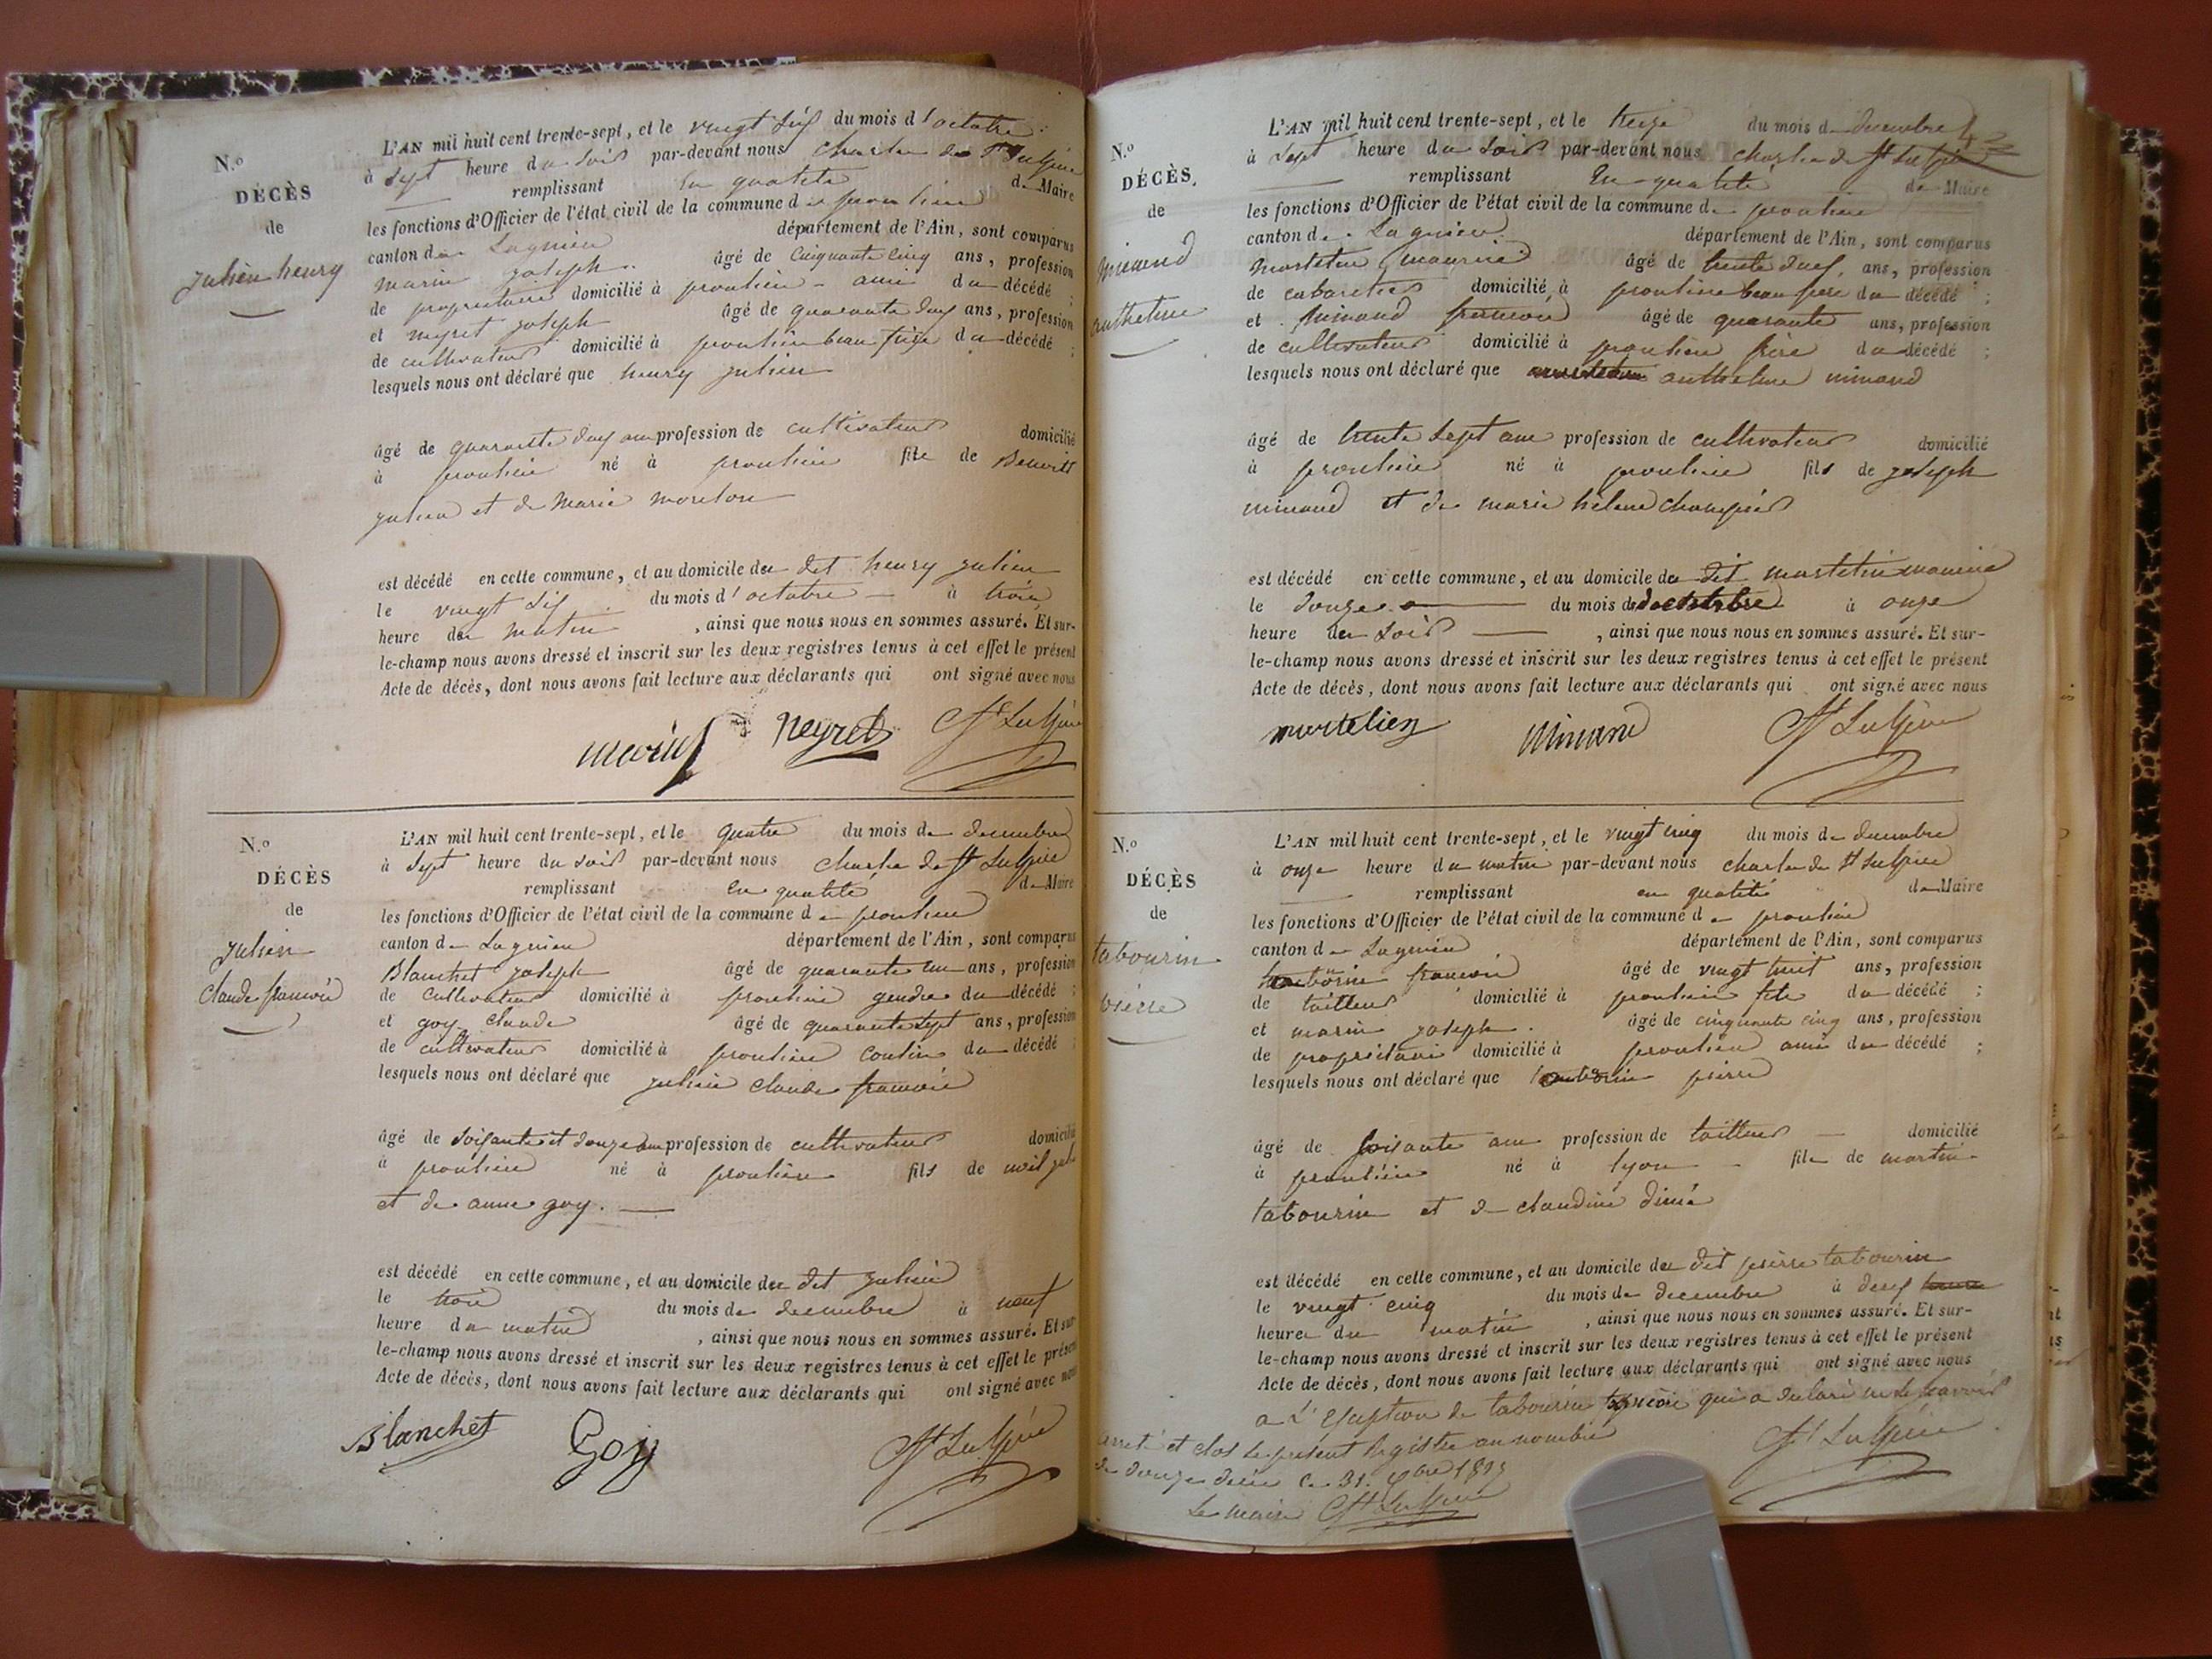 N.o
DÉCÈS
de
julien henry
L'AN mil huit cent trente-sept, et le vingt six du mois d'octobre
à sept heure du soir par-devant nous charle de St Sulpice
remplissant en qualité de Maire
les fonctions d'Officier de l'état civil de la commune de proulieu
canton de Lagnieu département de l'Ain, sont comparus
marin joseph âgé de cinquante cinq ans, profession
de propriétaire domicilié à proulieu ami du décédé ;
et neyret joseph âgé de quarante deux ans, profession
de cultivateur domicilié à proulieu beau frère du décédé ;
lesquels nous ont déclaré que henry julien
âgé de quarante deux ans profession de cultivateur domicilié
à proulieu né à proulieu fils de Benoit
julien et de Marie moreton
est décédé en cette commune, et au domicile du dit henry julien
le vingt six du mois d'octobre à trois
heure du matin , ainsi que nous nous en sommes assuré. Et sur-
le-champ nous avons dressé et inscrit sur les deux registres tenus à cet effet le présent
Acte de décès, dont nous avons fait lecture aux déclarants qui ont signé avec nous
marin j neyret St Sulpice
N.o
DÉCÈS
de
julien
Claude francois
L'AN mil huit cent trente-sept, et le quatre du mois de decembre
à sept heure du soir par-devant nous charle de St Sulpice
remplissant en qualité de Maire
les fonctions d'Officier de l'état civil de la commune de proulieu
canton de Lagnieu département de l'Ain, sont comparus
Blanchet joseph âgé de quarante un ans, profession
de cultivateur domicilié à proulieu gendre du décédé ;
et goy claude âgé de quarante sept ans, profession
de cultivateur domicilié à proulieu cousin du décédé ;
lesquels nous ont déclaré que julien claude francois
âgé de soisante et douze ans profession de cultivateur domicilié
à proulieu né à proulieu fils de noil
et de anne goy.
est décédé en cette commune, et au domicile du dit julien
le trois du mois de decembre à neuf
heure du matin , ainsi que nous nous en sommes assuré. Et sur
le-champ nous avons dressé et inscrit sur les deux registres tenus à cet effet le présent
Acte de décès, dont nous avons fait lecture aux déclarants qui ont signé avec nous
Blanchet Goy St Sulpice
N.o
DÉCÈS.
de
minand
anthelme
L'AN mil huit cent trente-sept, et le treize du mois de decembre
à sept heure du soir par-devant nous charle de St Sulpice
remplissant en qualité de Maire
les fonctions d'Officier de l'état civil de la commune de proulieu
canton de Lagnieu département de l'Ain, sont comparus
martelin maurice âgé de trente deux ans, profession
de cabaretier domicilié à proulieu beau frere du décédé ;
et minand francois âgé de quarante ans, profession
de cultivateur domicilié à proulieu frère du décédé ;
lesquels nous ont déclaré que anthelme minand
âgé de trente sept ans profession de cultivateur domicilié
à proulieu né à proulieu fils de joseph
minand et de marie hélene champier
est décédé en cette commune, et au domicile du dit martelin maurice
le douze du mois de decembre à onze
heure du soir , ainsi que nous nous en sommes assuré. Et sur-
le-champ nous avons dressé et inscrit sur les deux registres tenus à cet effet le présent
Acte de décès, dont nous avons fait lecture aux déclarants qui ont signé avec nous
martelien Minand St Sulpice
N.o
DÉCÈS
de
tabourin
pierre
L'AN mil huit cent trente-sept, et le vingt cinq du mois de decembre
à onze heure du matin par-devant nous charle de St Sulpice
remplissant en qualité de Maire
les fonctions d'Officier de l'état civil de la commune de proulieu
canton de Lagnieu département de l'Ain, sont comparus
tabourin francois âgé de vingt huit ans, profession
de tailleur domicilié à proulieu fils du décédé ;
et marin joseph. âgé de cinquante cinq ans, profession
de propriétaire domicilié à proulieu ami du décédé ;
lesquels nous ont déclaré que tabourin pierre
âgé de soisante ans profession de tailleur domicilié
à proulieu né à lyon fils de martin
tabourin et de claudine
est décédé en cette commune, et au domicile du dit pierre tabourin
le vingt cinq du mois de decembre à deux heure
heure du matin , ainsi que nous nous en sommes assuré. Et sur-
le-champ nous avons dressé et inscrit sur les deux registres tenus à cet effet le présent
Acte de décès, dont nous avons fait lecture aux déclarants qui ont signé avec nous
a L'exception de tabourin qui a declaré ne le savoir
St Sulpice
arreté et clos le présent registre au nombre
de douze deces le 31. Xbre 1837
Le maire St Sulpice